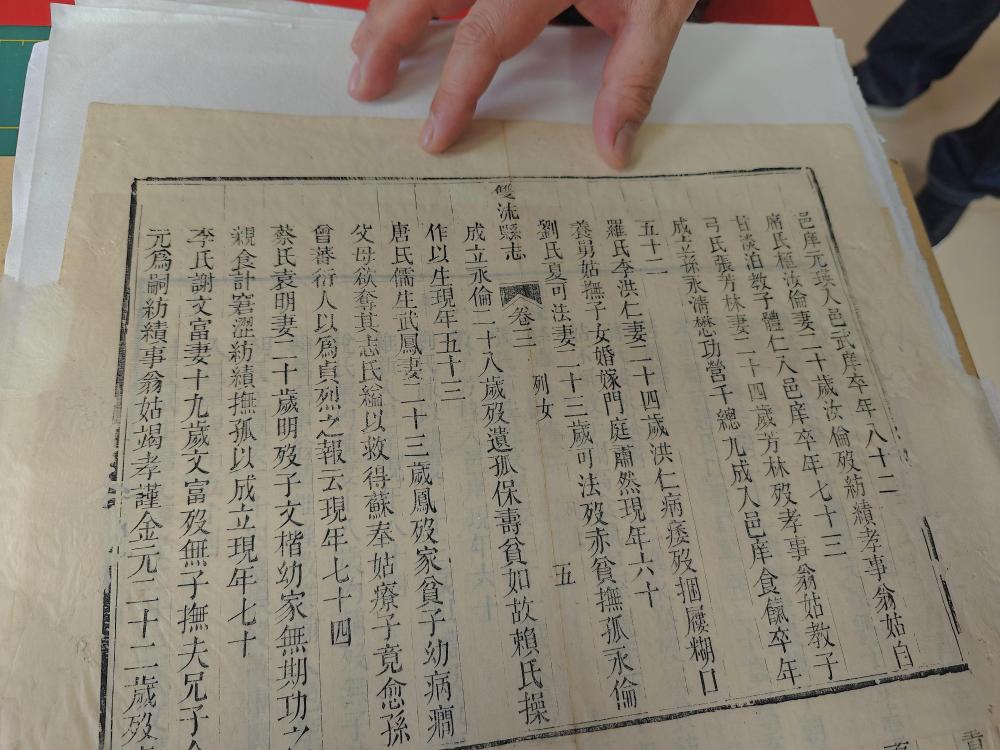 邑庠元瑛入邑武庠卒年八十二
席氏植汝倫妻二十歲汝倫歿紡績孝事翁姑自
甘淡泊教子體仁入邑庠卒年七十三
弓氏張芳林妻二十四歲芳林歿孝事翁姑教子
成立孫永清懋功營千總九成入邑庠食餼卒年
五十二
羅氏李洪仁妻二十四歲洪仁病痿歿捆屨糊口
養男姑撫子女婚嫁門庭肅然現年六十
劉氏夏可法妻二十三歲可法歿赤貧撫孤永倫
雙流縣志 卷三 列女 五
成立永倫二十八歲歿遺孤保壽貧如故賴氏操
作以生現年五十三
唐氏儒生武鳳妻二十三歲鳳歿家貧子幼病癇
父母欲奪其志氏縊以救得蘇奉姑療子竟愈孫
曾蕃衍人以爲貞烈之報云現年七十四
蔡氏袁明妻二十歲明歿子文楷幼家無期功之
親食計窘澀紡績撫孤以成立現年七十
李氏謝文富妻十九歲文富歿無子撫夫兄子金
元爲嗣紡績事翁姑竭孝謹金元二十二歲歿